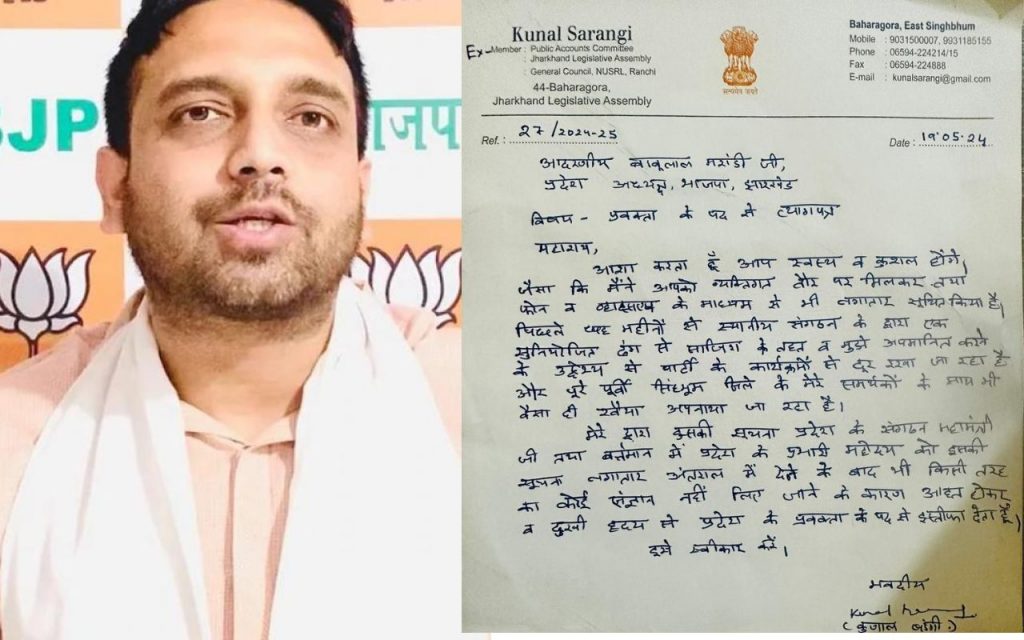 BJP
भाजपा
Kunal Sarangi
Ex-Member : Public Accounts Committee
: Jharkhand Legislative Assembly
: General Council, NUSRL, Ranchi
44-Baharagora,
Jharkhand Legislative Assembly
सत्यमेव जयते
Baharagora, East Singhbhum
Mobile : 9031500007, 9931185155
Phone : 06594-224214/15
Fax : 06594-224888
E-mail : kunalsarangi@gmail.com
Ref. : 27/2024-25
Date : 19.05.24
आदरणीय बाबुलाल मरांडी जी,
प्रदेश अध्यक्ष, भाजपा, झारखंड
विषय - प्रवक्ता के पद से त्यागपत्र
महाशय,
आशा करता हूँ आप स्वस्थ व कुशल होंगे।
जैसा कि मैंने आपको व्यक्तिगत तौर पर मिलकर तथा
फोन व व्हाट्सएप के माध्यम से भी लगातार सूचित किया है।
पिछले छह महीनों से स्थानीय संगठन के द्वारा एक
सुनियोजित ढंग से साजिश के तहत व मुझे अपमानित करने
के उद्देश्य से पार्टी के कार्यक्रमों से दूर रखा जा रहा है
और पूरे पूर्वी सिंहभूम जिले के मेरे समर्थकों के साथ भी
वैसा ही रवैया अपनाया जा रहा है।
मेरे द्वारा इसकी सूचना प्रदेश के संगठन महामंत्री
जी तथा वर्त्तमान में प्रदेश के प्रभारी महोदय को इसकी
सूचना लगातार अंतराल में देने के बाद भी किसी तरह
का कोई संज्ञान नहीं लिए जाने के कारण आहत होकर
व दुखी हृदय से प्रदेश के प्रवक्ता के पद से इस्तीफा देता हूँ।
इसे स्वीकार करें।
भवदीय
Kunal
(कुणाल षड़ंगी)